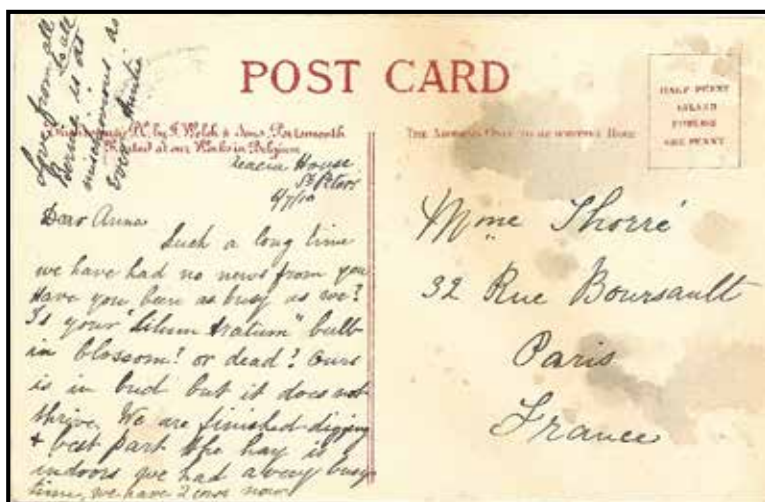 Love from all
to all
Bernie is as
mischievous as
ever Auntie
POST CARD
by F. Welch & Sons, Portsmouth
Printed at our Works in Belgium
THE ADDRESS ONLY TO BE WRITTEN HERE
HALF PENNY
INLAND
FOREIGN
ONE PENNY
Acacia House
St Peters
6/7/10
Dear Anna
Such a long time
we have had no news from you
Have you been as busy as we?
Is your "Lilium Aratum" bulb
in blossom? or dead? Ours
is in bud but it does not
thrive. We are finished digging
& best part the hay is
indoors we had a very busy
time, we have 2 cows now
Mme Thorré
32 Rue Boursault
Paris
France